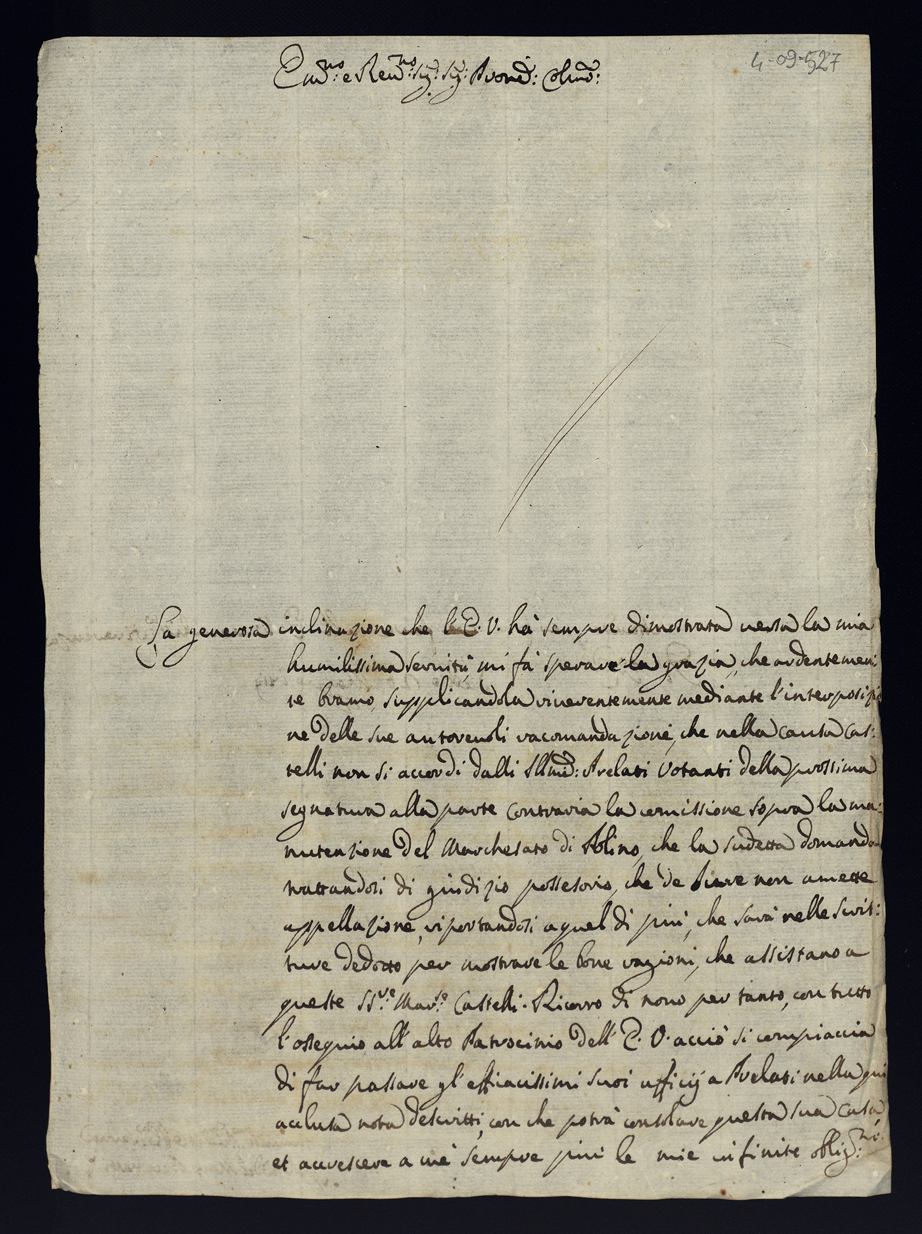 4-09-527
Em.no e Rev.mo Sig.r Sig.r Pron. Col.mo
La generosa inclinazione che l'E. V. hà sempre dimostrata versa la mia
humilissima servitù, mi fà sperare la grazia, che ardentemen:
te bramo, supplicandola riverentemente mediante l'interposizio
ne delle sue autorevoli racomandazioni, che nella causa Cas:
telli non si accordi dalli Ill.mi Prelati Votanti della prossima
segnatura alla parte contraria la comissione sopra la ma:
nutenzione del Marchesato di Ablino, che la sudetta domanda
trattandosi di giudizio possesorio, che de Iure non amette
appellazione, riportandosi a quel di più, che sarà nelle scrit:
ture dedotto per mostrare le bone ragioni, che assistano a
queste SS.re Mar.e Castelli. Ricorro di novo per tanto, con tutto
l'ossequio all'alto Patrocinio dell'E. V. acciò si compiaccia
di far passare gl'efficacissimi suoi ufficij a Prelati nella qui
acclusa nota descritti, con che potrà consolare questa sua Casa
et accrescere a me sempre più le mie infinite oblig.ni